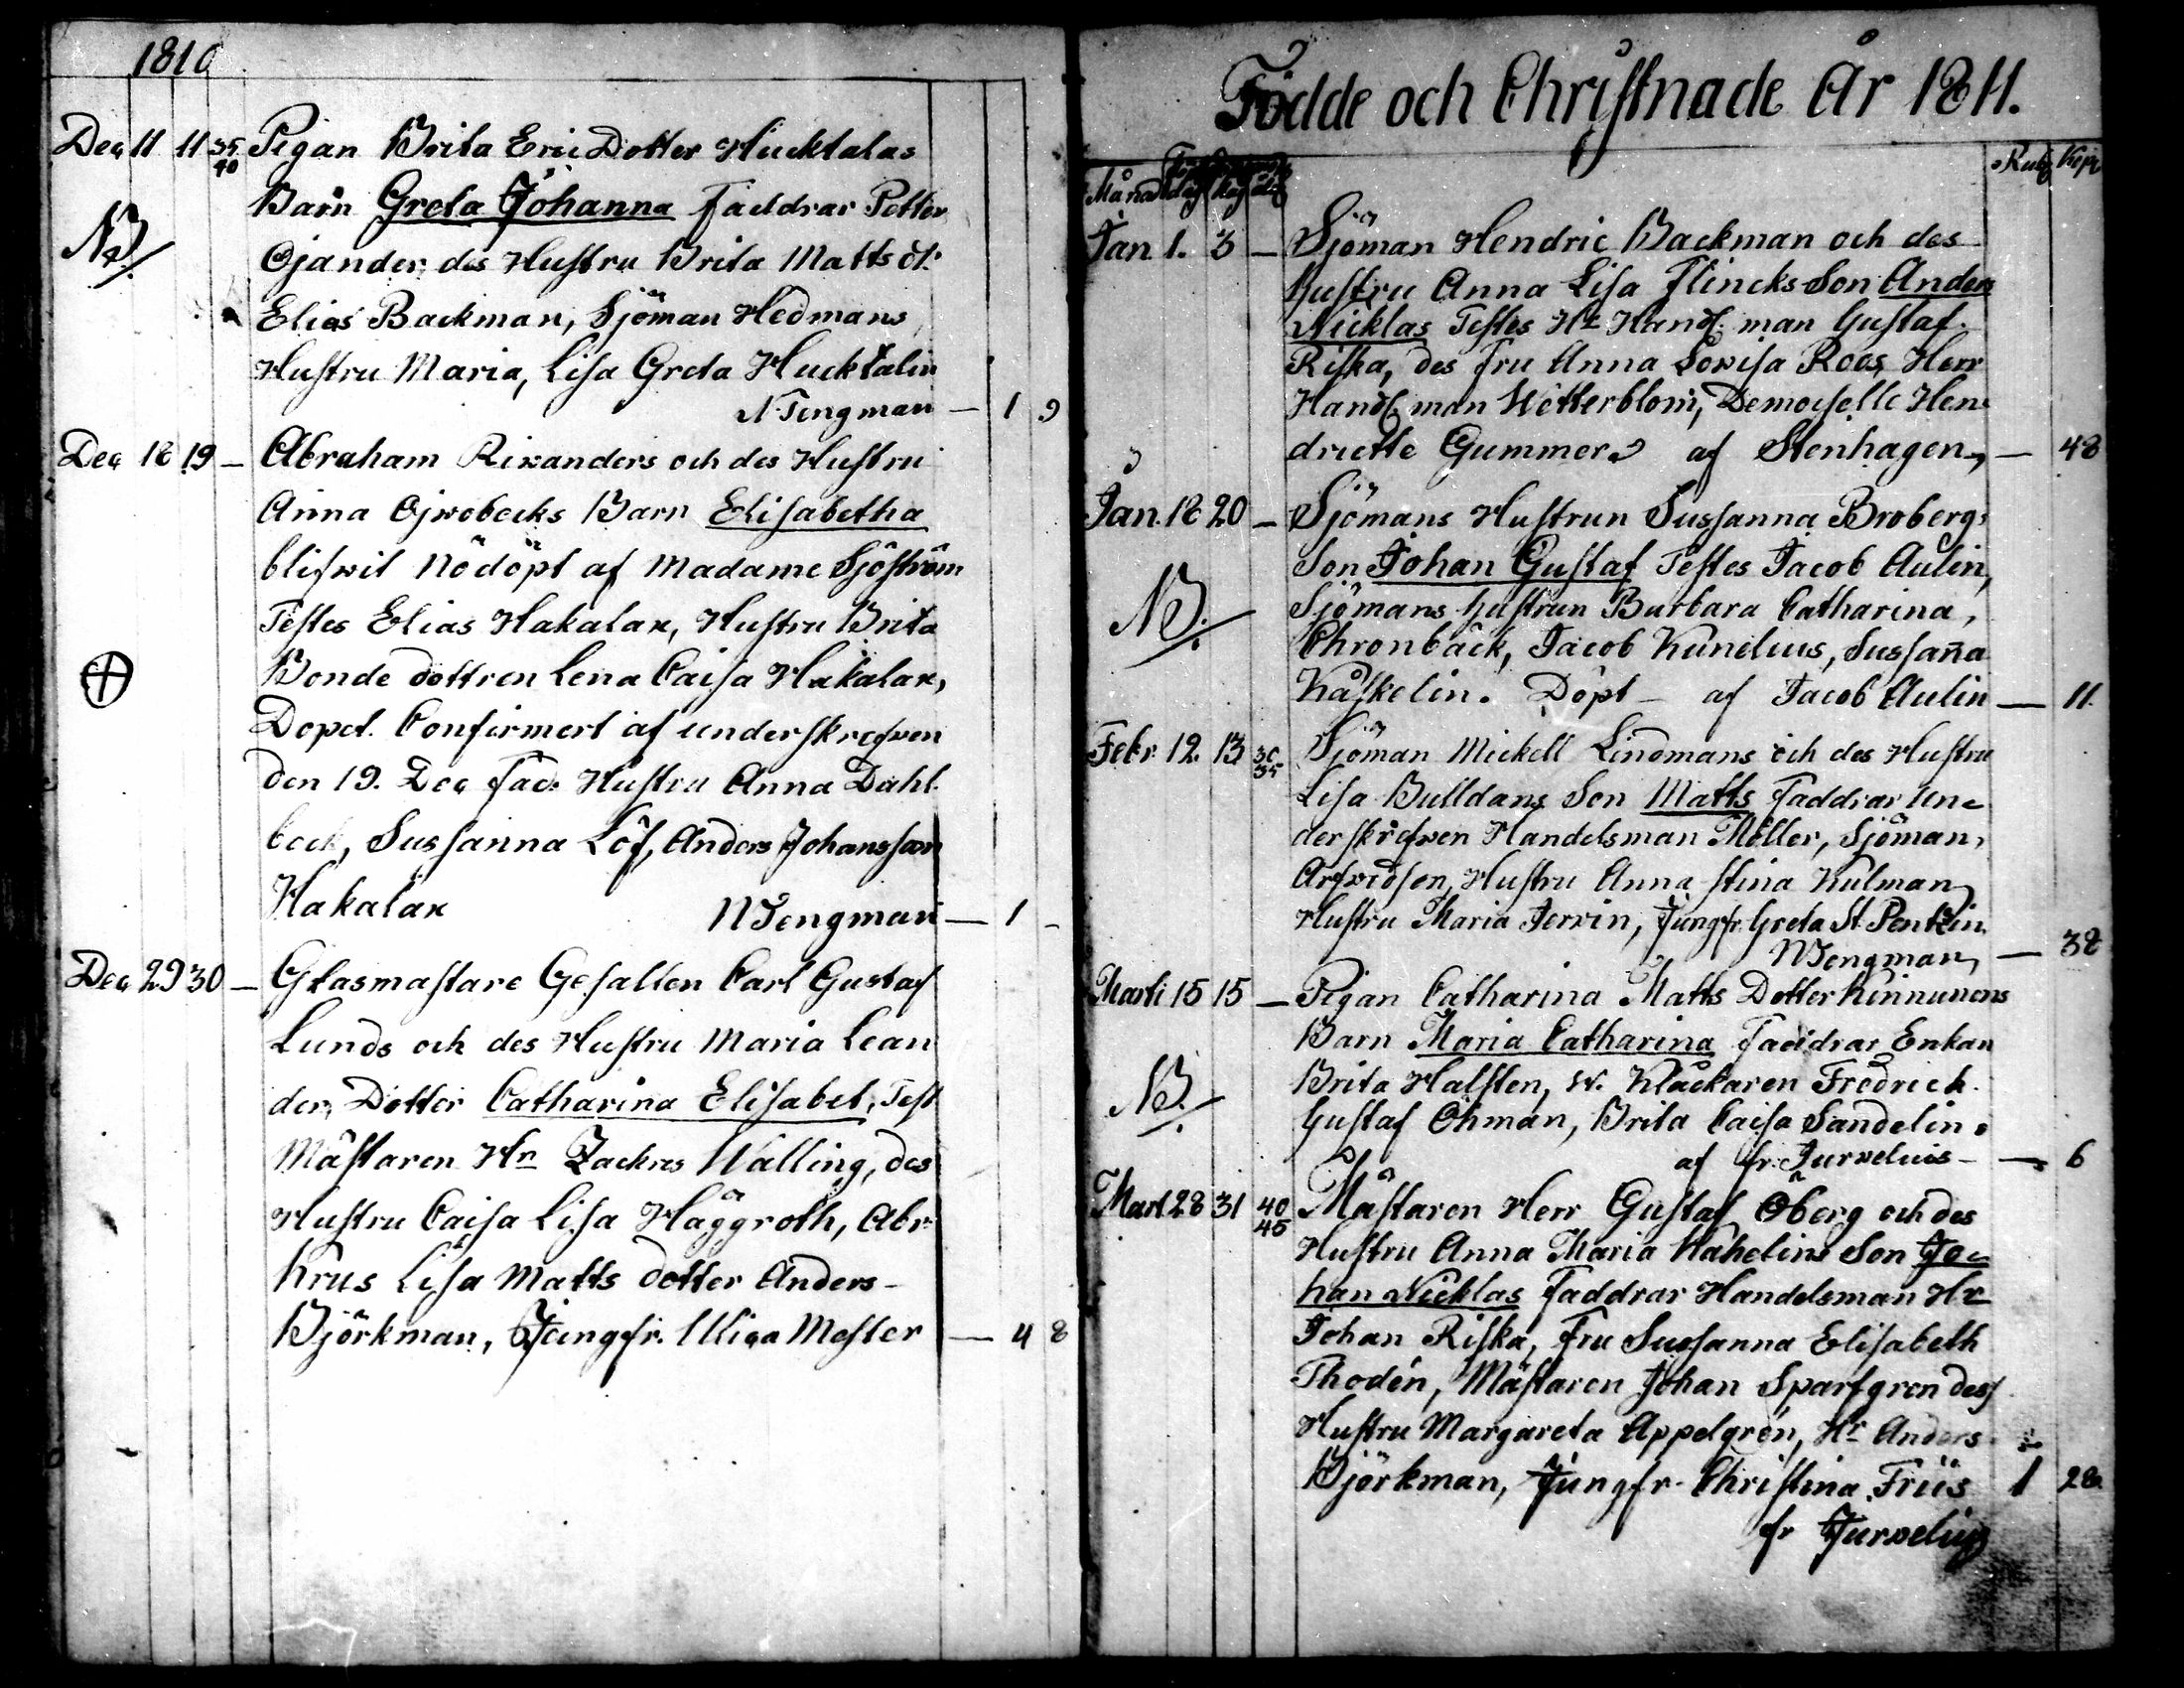 1810
Dec 11 11 35 40 Pigan Brita Eric Dotter Hucktalas
Barn Greta Johanna Faddrar Petter
NB. Ojander, des Hustru Brita Matts dt:
Elias Backman, Sjöman Hedmans
Hustru Maria, Lisa Greta Hucktalin
N Tengman — 1 9
Dec 18 19 — Abraham Rivanders och des Hustru
Anna Ojwobecks Barn Elisabetha
blifwit Nödöpt af Madame Sjöström
Testes Elias Hakalax, Hustru Brita
Bonde dottren Lena Caisa Hakalax,
Dopet. Confirmert af underskrefwen
den 19. Dec Fad: Hustru Anna Dahl
beck, Sussanna Löf, Anders Johansson
Hakalax N Tengman — 1 -
Dec 29 30 — Glasmastare Gesallen Carl Gustaf
Lunds och des Hustru Maria Lean
der, Dotter Catharina Elisabet, Test
Mästaren Hn Zackres Walling, des
Hustru Caisa Lisa Häggroth, Abr:
Krus Lisa Matts dotter Anders
Björkman, Jungfr. Ulica Meller — 4 8
Födde och Christnade År 1811.
Månad dag dag Rub Kop
Jan 1. 3 — Sjöman Hendric Backman och des
Hustru Anna Lisa Flincks Son Anders
Nicklas Testes Hr Handl. man Gustaf
Riska, des Fru Anna Lovisa Roos, Herr
Handl. man Wetterblom, Demoiselle Hen
driette Gummer af Stenhagen, — 48
Jan. 18 20 — Sjömans Hustrun Sussanna Brobergs
Son Johan Gustaf Testes Jacob Aulin,
NB. Sjömans hustrun Barbara Catharina,
Chronbäck, Jacob Kunelius, Sussaña
Kåskelin. Döpt — af Jacob Aulin — 11.
Febr. 12. 13 30 35 Sjöman Mickell Lindmans och des Hustru
Lisa Bulldans Son Matts Faddrar Un-
derskrefwen Handelsman Möller, Sjöman,
Arfvidson, Hustru Anna Stina Kulman,
Hustru Maria Jervin, Jungfr Greta St. Pentzin
N Tengman, — 38
Marti 15 15 — Pigan Catharina Matts Dotter Kinnunens
Barn Maria Catharina Faddrar Enkan
NB. Brita Halsten, w. Klåckaren Fredrick
Gustaf Öhman, Brita Caisa Sandelin.
af fr. Jurvelius — 6
Mart 28 31 40 45 Mästaren Herr Gustaf Öberg och des
Hustru Anna Maria Wahelins Son Jo-
han Nicklas Faddrar Handelsman Hr
Johan Riska, Fru Sussanna Elisabeth
Thodén, Mästaren Johan Sparfgren dess
Hustru Margareta Appelgrén, Hr Anders
Björkman, Jungfr. Christina Friis 1 28
fr Jurvelius